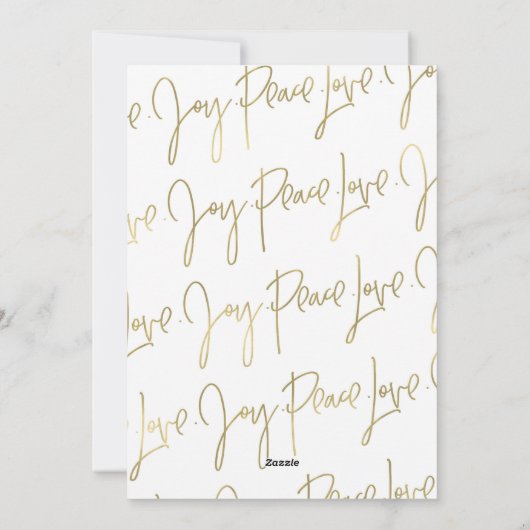 e. Joy. Peace. Love. J
ve. Joy. Peace. Love. Jo
Love. Joy. Peace. Love. J
Love. Joy. Peace. Love.
Zazzle